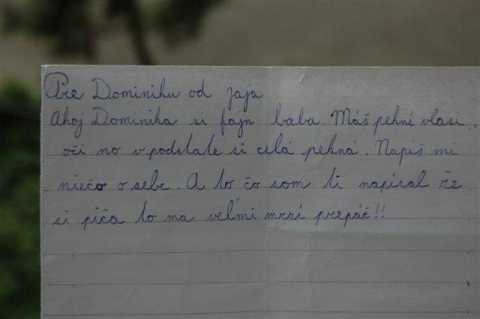 Pre Dominiku od jaja
Ahoj Dominika si fajn baba. Máš pekní vlasi,
oči no v podstate si celá pekná. Napiš mi
niečo o sebe. A to čo som ti napísal že
si piča to ma veľmi mrzí prepáč!!